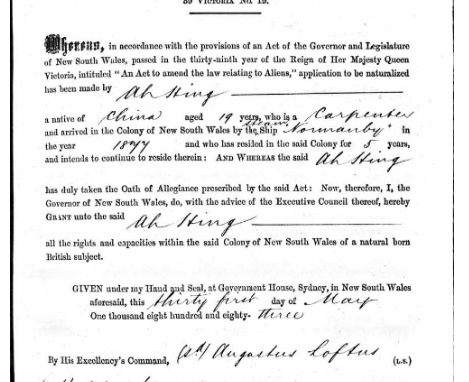 39 VICTORIA No. 19.
Whereas, in accordance with the provisions of an Act of the Governor and Legislature
of New South Wales, passed in the thirty-ninth year of the Reign of Her Majesty Queen
Victoria, intituled "An Act to amend the law relating to Aliens," application to be naturalized
has been made by Ah Hing
a native of China aged 19 years, who is a Carpenter
and arrived in the Colony of New South Wales by the steam Ship "Normanby" in
the year 1877 and who has resided in the said Colony for 5 years,
and intends to continue to reside therein: AND WHEREAS the said Ah Hing
has duly taken the Oath of Allegiance prescribed by the said Act: Now, therefore, I, the
Governor of New South Wales, do, with the advice of the Executive Council thereof, hereby
GRANT unto the said
Ah Hing
all the rights and capacities within the said Colony of New South Wales of a natural born
British subject.
GIVEN under my Hand and Seal, at Government House, Sydney, in New South Wales
aforesaid, this thirty first day of May
One thousand eight hundred and eighty-three
By His Excellency's Command, (sd) Augustus Loftus (L.S.)